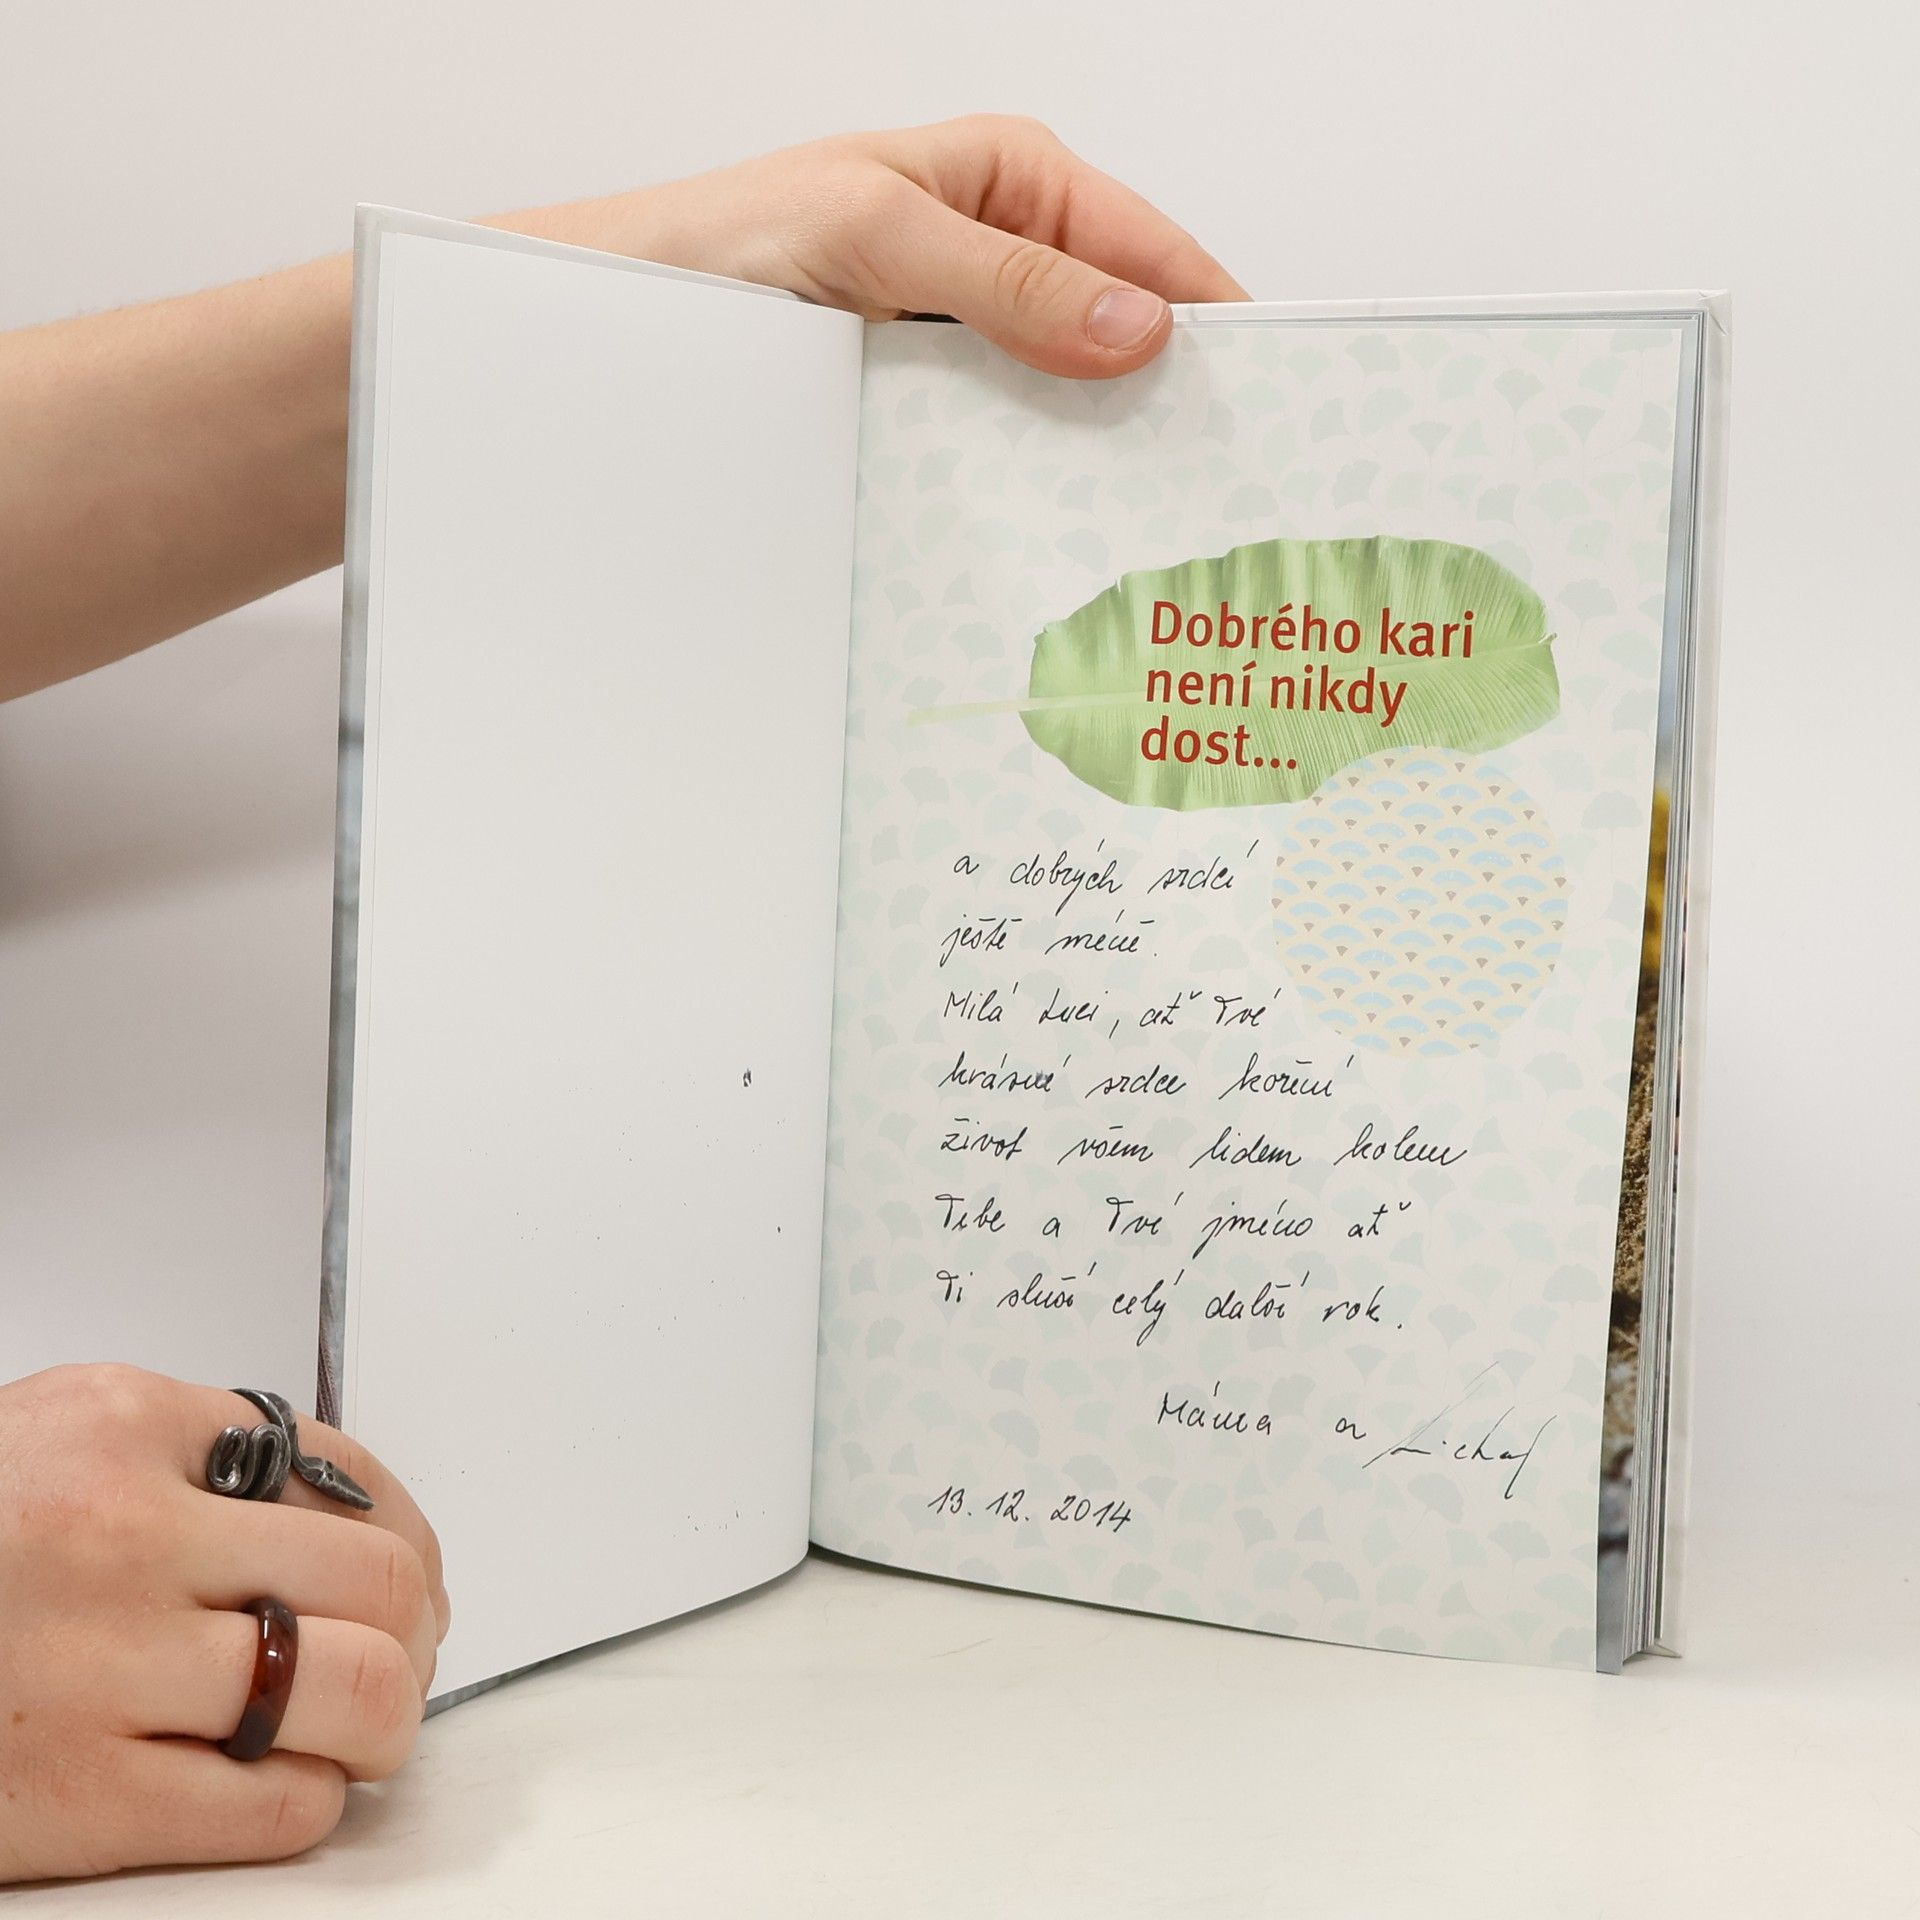 Dobrého kari
není nikdy
dost...
a dobrých srdcí
ještě méně.
Milá Luci, ať Tvé
krásné srdce koření
život všem lidem kolem
Tebe a Tvé jméno ať
Ti sluší celý další rok.
Máma a
13. 12. 2014